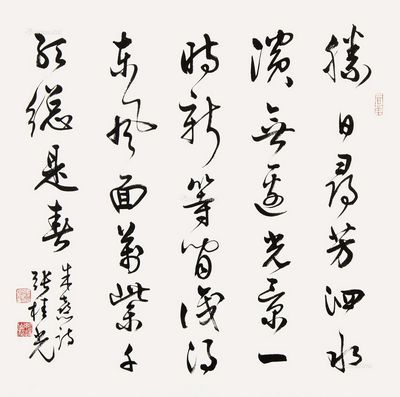 勝日尋芳泗水
濱無邊光景一
時新等閒識得
東風面萬紫千
紅總是春
朱熹詩
張桂光